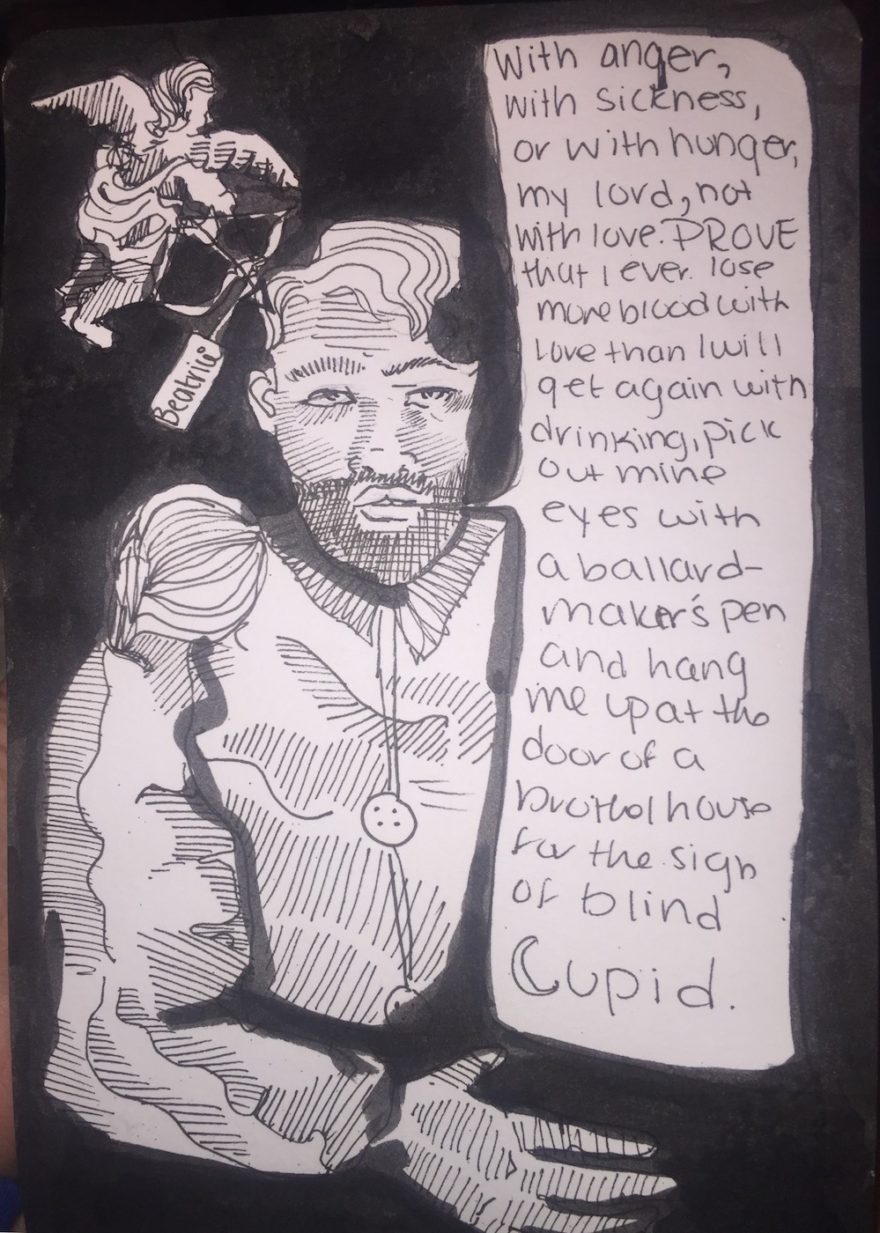 With anger,
with sickness,
or with hunger,
my lord, not
with love. PROVE
that I ever lose
more blood with
love than I will
get again with
drinking, pick
out mine
eyes with
a ballard-
maker's pen
and hang
me up at the
door of a
brothel house
for the sign
of blind
Cupid.
Beatrice